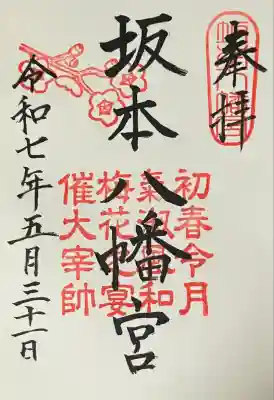 奉拝
坂本八幡宮
初春令月
氣淑風和
梅花の宴
催大宰帥
令和七年五月三十一日